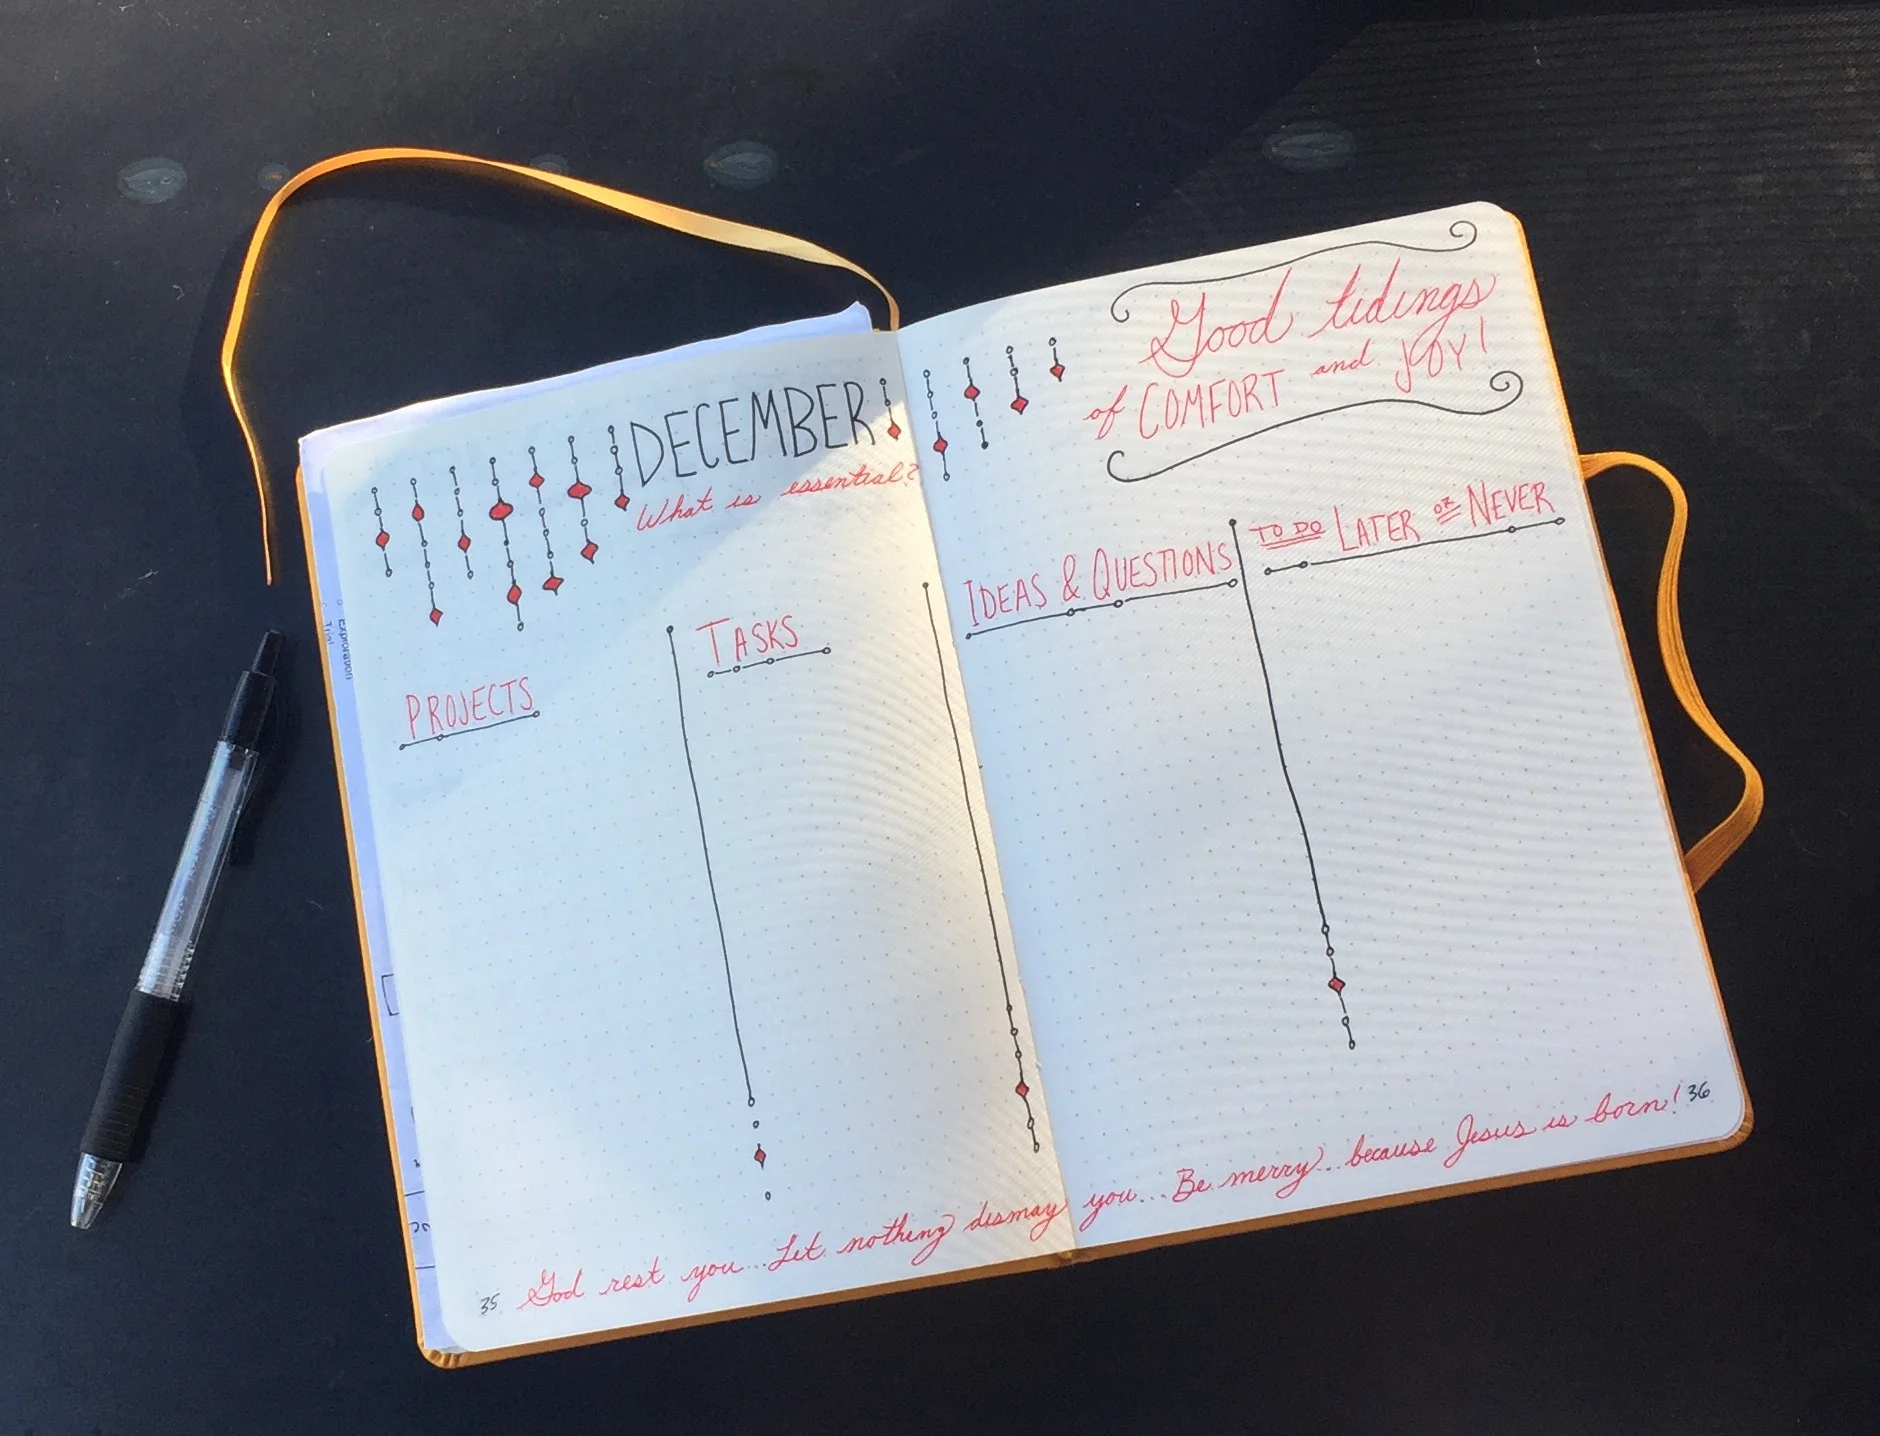 DECEMBER
What is essential?
PROJECTS
TASKS
Good tidings
of COMFORT and JOY!
IDEAS & QUESTIONS
TO DO LATER OR NEVER
God rest you... Let nothing dismay you... Be merry... because Jesus is born!
35
36
Exploration
Trial